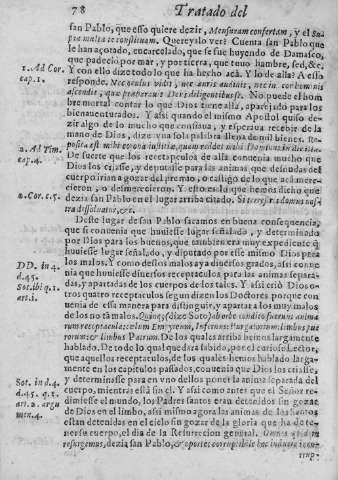 78 Tratado del
san Pablo, que esso quiere dezir, Mensuram confertam, y el Supra multa te constituam. Quereyslo ver? Cuenta san Pablo que
le han açotado, encarcelado, que se fue huyendo de Damasco,
que padecio por mar, y por tierra, que tuuo hambre, sed, &c.
1. Ad Cor. cap. 2.
Y con ello dize todo lo que ha hecho acà. Y lo de alla? A esso
responde. Nec oculus vidit, nec auris audiuit, nec in cor hominis
ascendit, quæ præparauit Deus diligentibus se. No puede el hombre mortal contar lo que Dios tiene alla, aparejado para los
bienauenturados. Y assi quando el mismo Apostol quiso dezir algo de lo mucho que
mano de Dios, dize vna sola palabra llena de mil bienes. Reposita est mihi corona iustitiæ, quam reddet mihi Dominus in die
2. Ad Tim. cap. 4.
De suerte que los receptaculos de alla conuenia mucho que
Dios los criasse, y deputasse para las animas, que desnudas del
cuerpo
cieron, o desmerecieron. Y esto es lo que hemos dicho que
2. Cor. c. 5.
dezia san Pablo en el lugar arriba citado. Si terrestris domus nostra dissoluatur, &c.
Deste lugar de san Pablo sacamos en buena consequencia,
que se conuenia que huuiesse lugar señalado, y determinado
por Dios para los buenos, que tambien era muy expediente q̃
huuiesse lugar señalado, y diputado por esse mismo Dios para
los malos. Y como des los malos aya diuersos grados, assi conuenia que huuiesse diuersos receptaculos para las animas separadas, y apartadas de los cuerpos de los tales. Y assi criò Dios otros quatro receptaculos
DD. in 4. d. 45.
Sot. ibi q. 1. art. 1.
uenia de essa manera para distinguir, y apartar a los muy malos
de los no tã malos. Quinq; (dize Soto) ab orbe condito fuerunt animarum receptacula: cælum Empyreum, Infernus: Purgatorium: limbus puerorum: & limbus Patrum. De los quales arriba hemos largamente
hablado. De todo lo qual queda sabido, por el curioso Lector,
que aquellos receptaculos, de los quales hemos hablado largamente en los capitulos passados, conuenia que Dios los criasse,
y determinasse para en vno dellos poner la anima separada del
Sot. in d. 4. d. 45. q. 1. art. 2. argumen. 4.
cuerpo, mientras està sin el. Y assi como antes que el Señor redimiesse el mundo, los Padres santos eran detenidos sin gozar
de Dios en el limbo, assi mismo agora las animas de los santos
estan detenidas en el cielo sin gozar de la gloria que ha de tener su cuerpo, el dia de la Resurrecion general.
resurgemus, dezia san Pablo, & oportet corruptibile hoc induere incorrup-